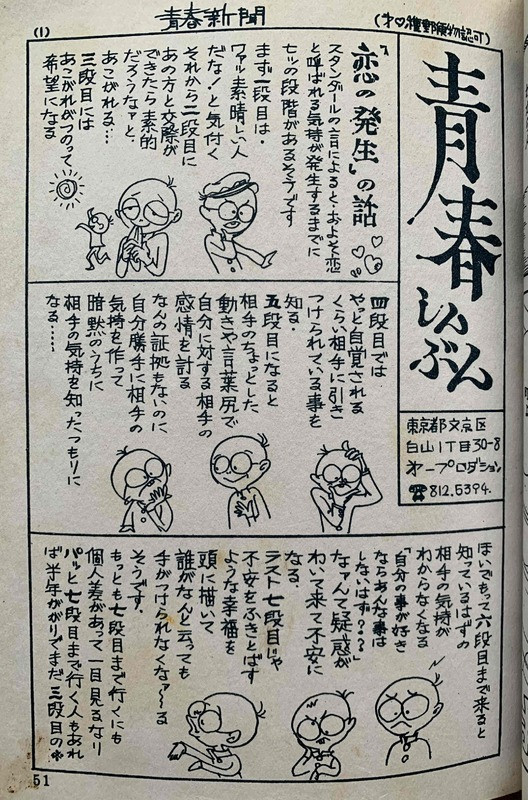 (1)
青春新聞
青春しんぶん
東京都文京区
白山1丁目30-8
オープロダクション
☎812.5394.
「恋の発生」の話
スタンダールの言によると、およそ恋
と呼ばれる気持が発生するまでに
七ッの段階があるそうです
まず一段目は・
ワァッ素晴しい人
だな!と気付く
それから二段目に
あの方と交際が
できたら素的
だろうなァと、
あこがれる…
三段目には
あこがれがつのって
希望になる
四段目では
やっと自覚される
くらい相手に引き
つけられている事を
知る・
五段目になると
相手のちょっとした
動きや言葉尻で
自分に対する相手の
感情を討る
なんの証拠もないのに
自分勝手に相手の
気持を作って
暗黙のうちに
相手の気持を知ったつもりに
なる……
ほいでもって六段目まで来ると
知っているはずの
相手の気持が
わからなくなる
「自分の事が好き
ならあんな事は
しないはず???
なァんて疑惑が
わいて来て不安に
なる。
ラスト七段目じゃ
不安をふきとばす
ような幸福を
頭に描いて
誰がなんと云っても
手がつけられなくなァ〜る
そうです.
もっとも七段目まで行くにも
個人差があって一目見るなり
パッと七段目まで行く人もあれ
ば半年がかりでまだ三段目の
51